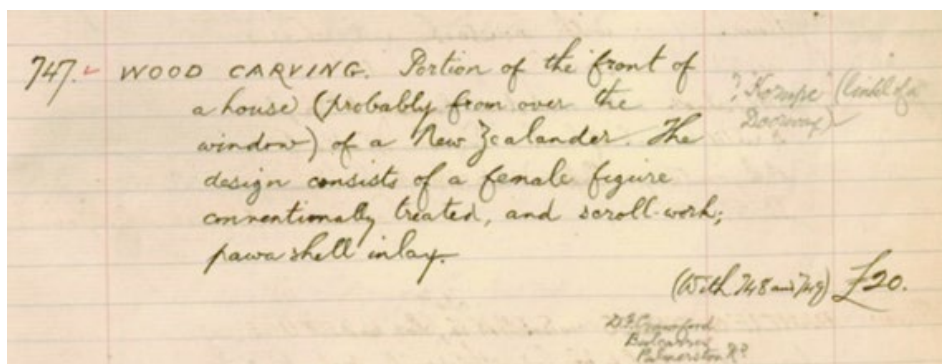 747. WOOD CARVING. Portion of the front of
a house (probably from over the
window) of a New Zealander. The
design consists of a female figure
conventionally treated, and scroll-work;
pawa shell inlay.
? (lintel of a
Doorway)
(With 748 and 749) £20.
D.F. Crawford
Palmerston Rd